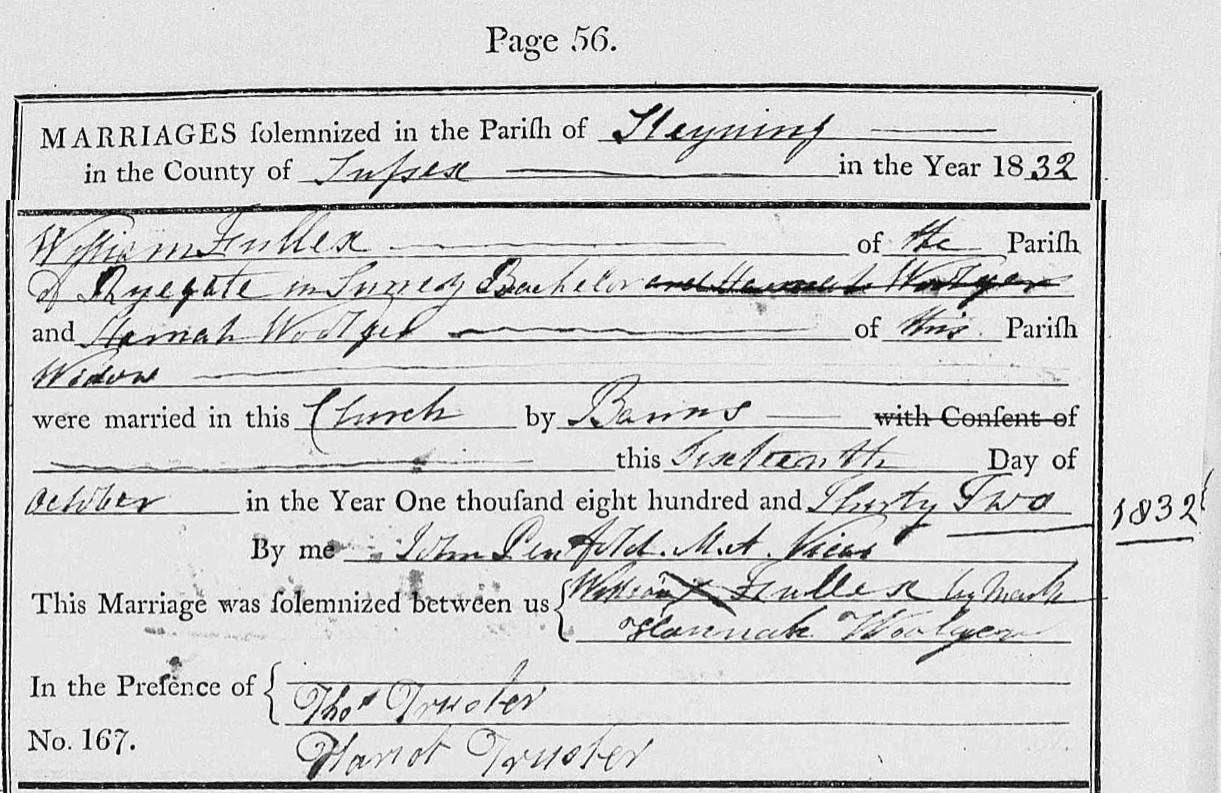 Page 56.
MARRIAGES ſolemnized in the Pariſh of Steyning
in the County of Suſsex in the Year 1832
William Fuller of the Pariſh
of Ryegate in Surrey Bachelor and Hannah Woolger
and Hannah Woolger of this Pariſh
Widow
were married in this Church by Banns with Conſent of
this Sixteenth Day of
October in the Year One thouſand eight hundred and Thirty Two
1832
By me John Penfold M.A. Vicar
This Marriage was ſolemnized between us William X Fuller by Mark
Hannah Woolger
In the Preſence of Thoˢ Truster
No. 167. Hariot Truster